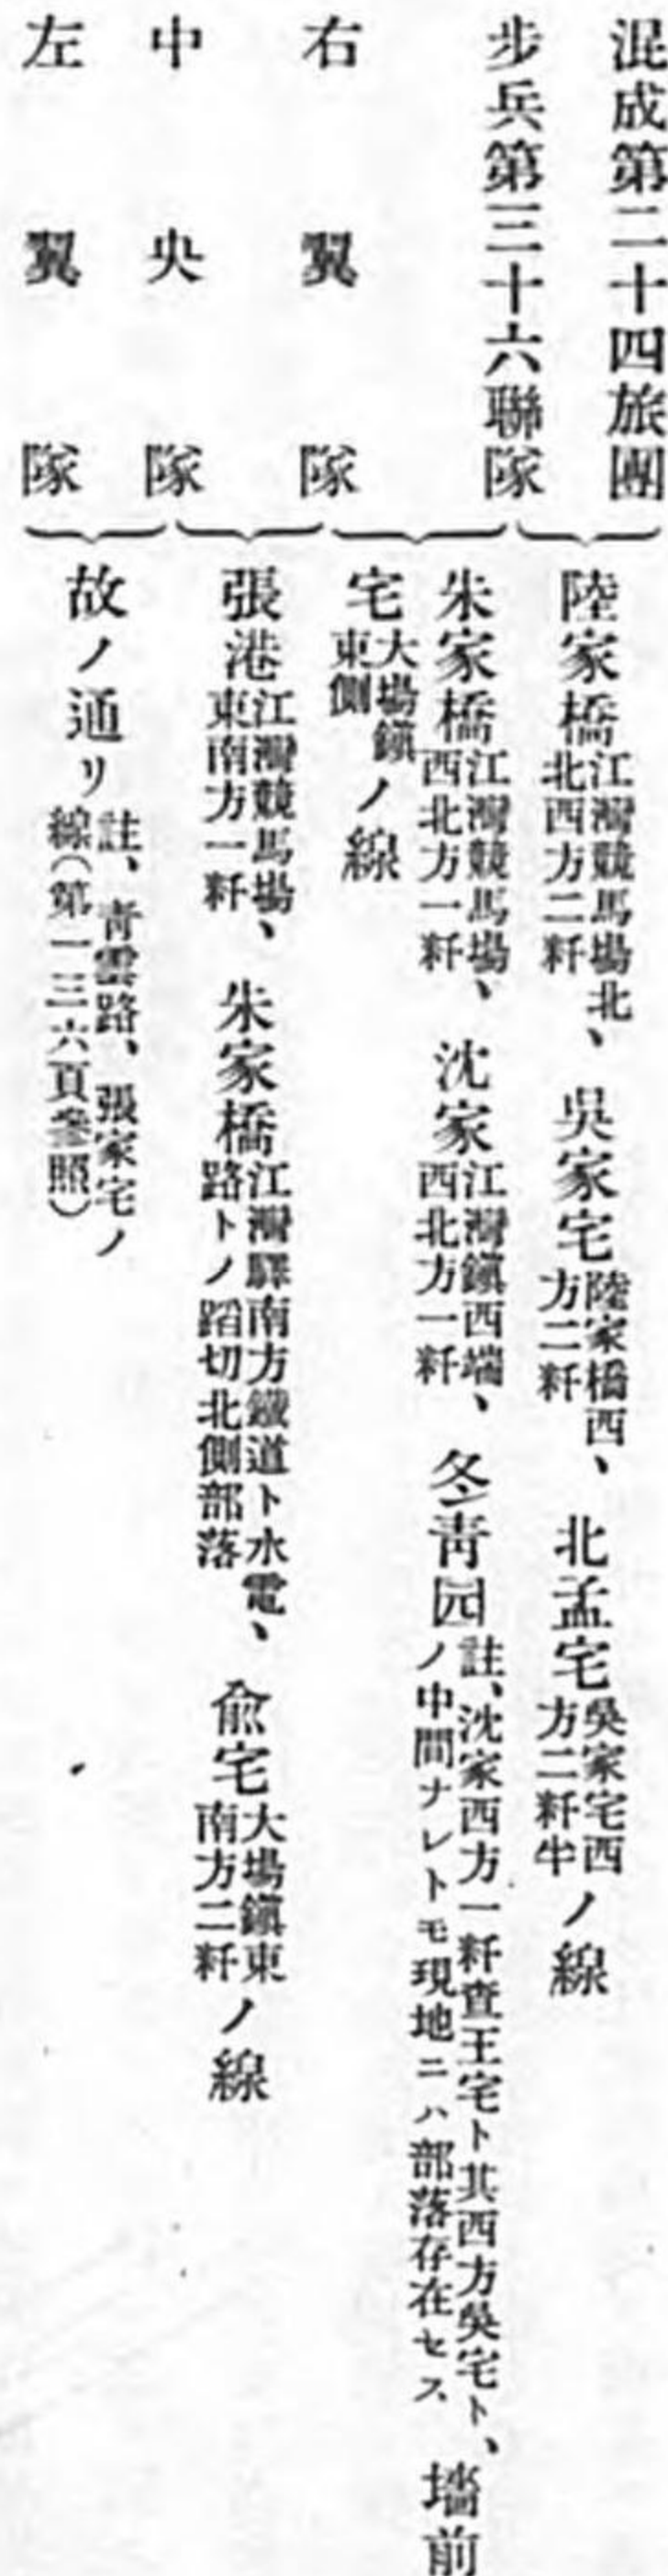 混成第二十四旅團
步兵第三十六聯隊
右翼隊
中央隊
左翼隊
陸家橋江灣競馬場北、北西方二粁吳家宅陸家橋西、方二粁北孟宅吳家宅西方二粁半ノ線
朱家橋江灣競馬場、西北方一粁沈家江灣鎭西端、西北方一粁冬靑园註、沈家西方一粁査王宅ト其西方吳宅ト、ノ中間ナレトモ現地ニハ部落存在セス墻前
宅大場鎭東側ノ線
張港江灣競馬場、東南方一粁朱家橋江灣驛南方鐵道ト水電、路トノ踏切北側部落兪宅大場鎭東南方二粁ノ線
故ノ通リ註、靑雲路、張家宅ノ線(第一三六頁參照)